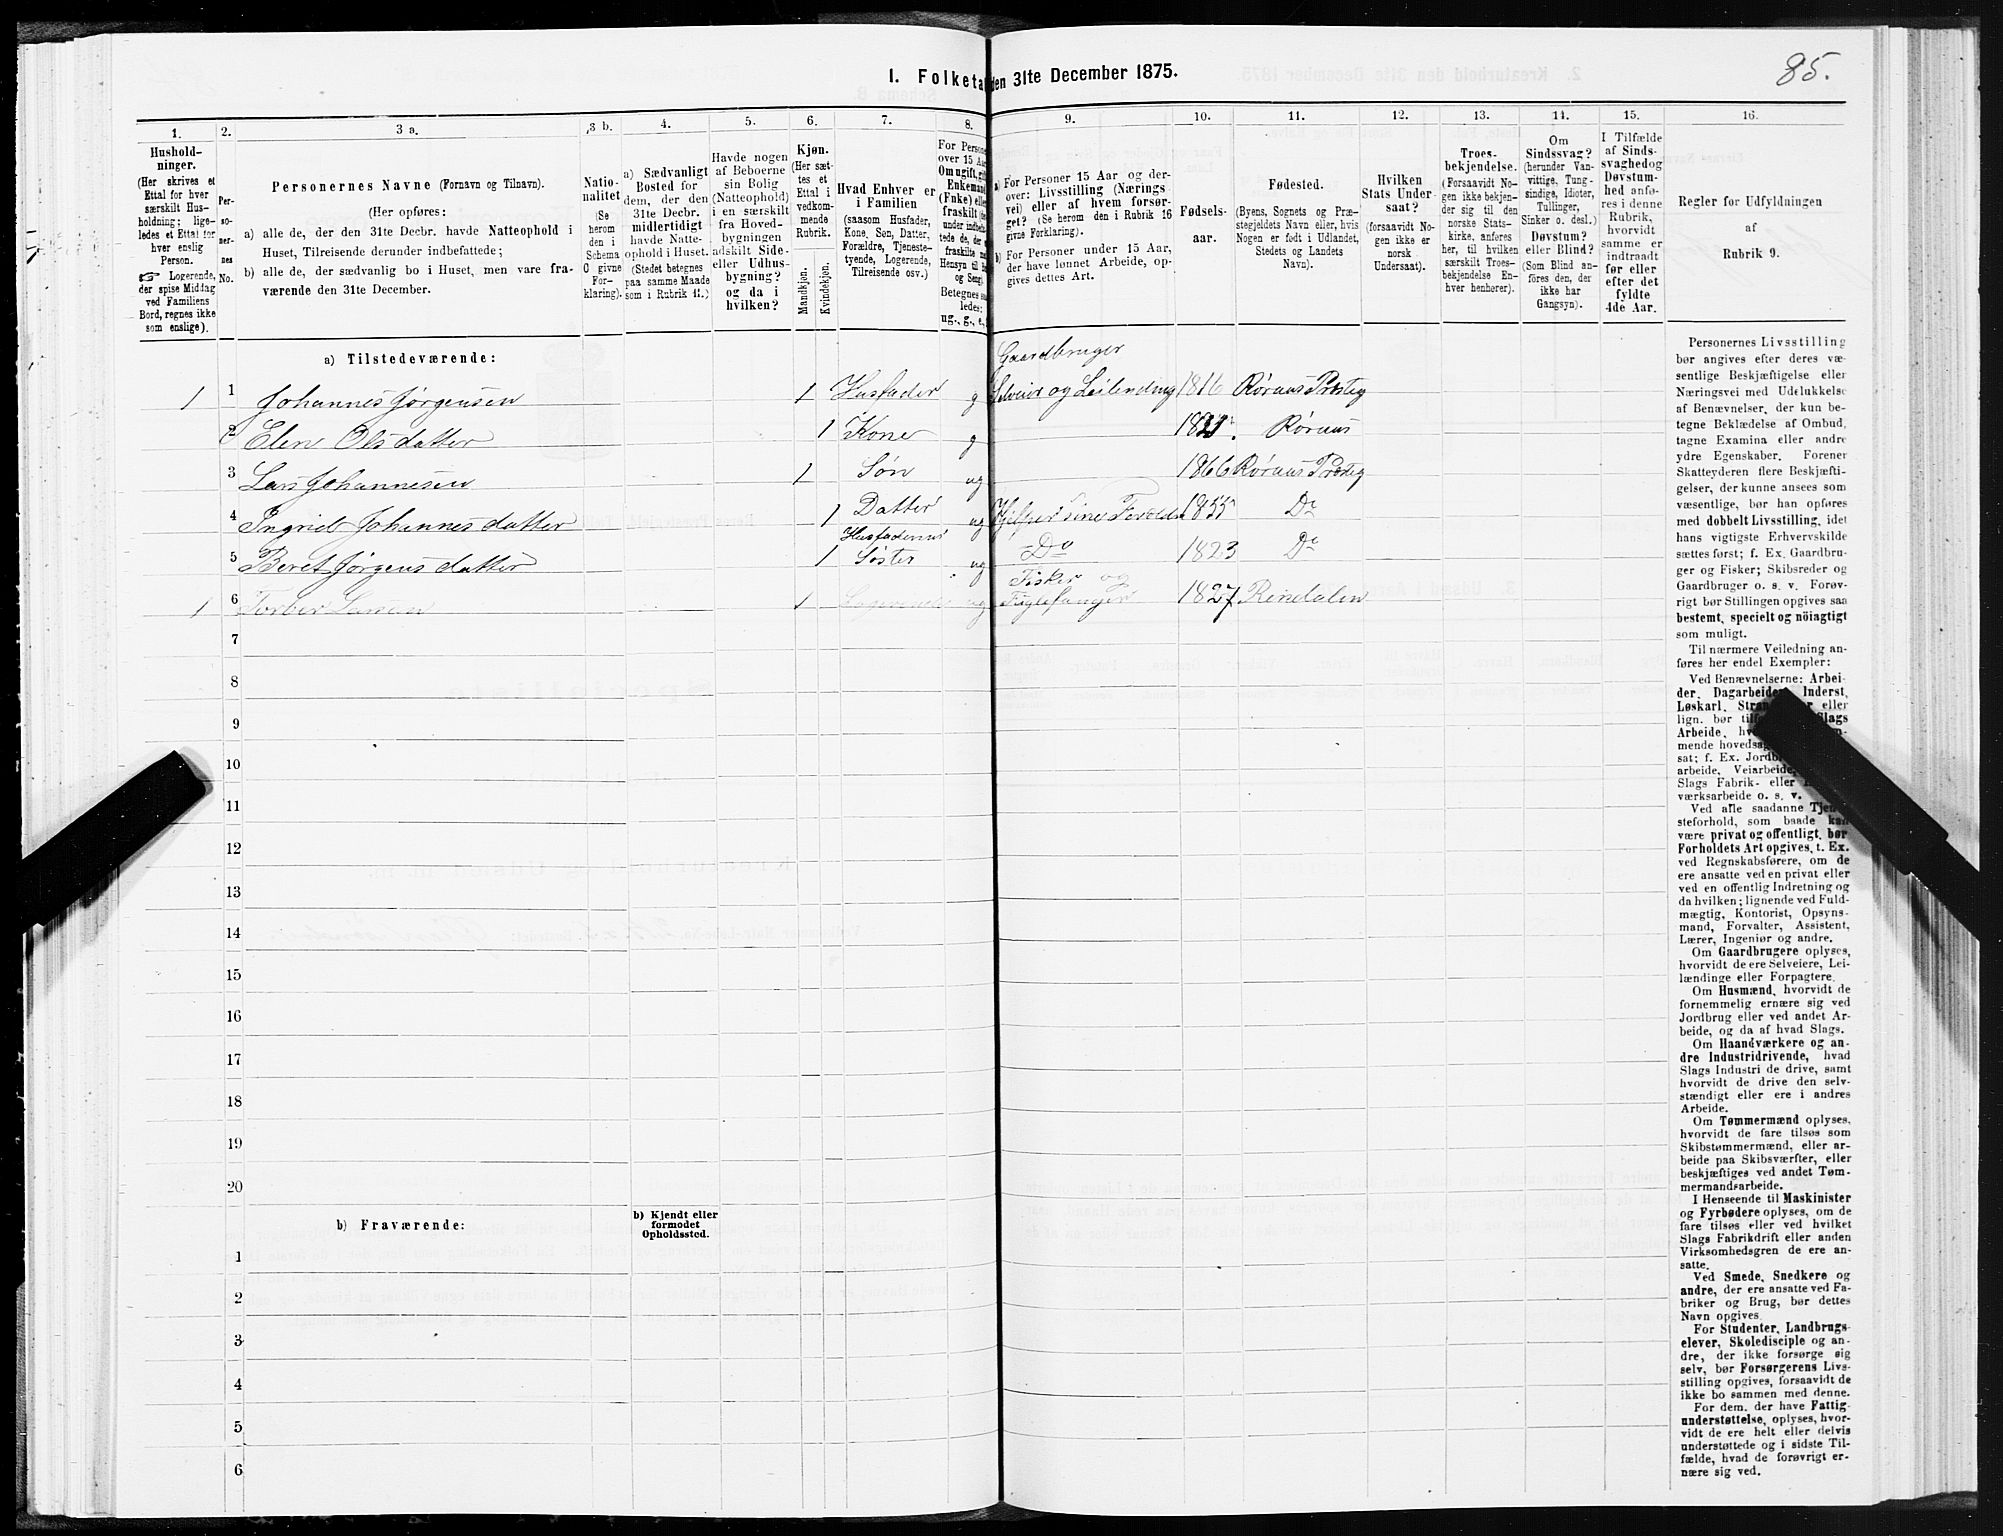 85.
I. Folketæ
den 31te December 1875.
1.
2.
3 a.
3 b.
4.
5.
6.
7.
8.
9.
10.
11.
12.
13.
14.
15.
16.
Hushold-
ninger.
(Her skrives et
Ettal for hver
særskilt Hus-
holdning; lige-
ledes et Ettal for
hver enslig
Person.
☞ Logerende,
der spise Middag
ved Familiens
Bord, regnes ikke
som enslige).
Per-
so-
ner-
nes
No.
Personernes Navne (Fornavn og Tilnavn).
(Her opføres:
a) alle de, der den 31te Decbr. havde Natteophold i
Huset, Tilreisende derunder indbefattede;
b) alle de, der sædvanlig bo i Huset, men vare fra-
værende den 31te December.
Natio-
nalitet
(Se
herom
den i
Schema
O givne
For-
klaring).
a) Sædvanligt
Bosted for
dem, der den
31te Decbr.
midlertidigt
havde Natte-
ophold i Huset.
(Stedet betegnes
paa samme Maade
som i Rubrik 11.)
Havde nogen
af Beboerne
sin Bolig
(Natteophold)
i en særskilt
fra Hoved-
bygningen
adskilt Side-
eller Udhus-
bygning?
og da i
hvilken?
Kjøn.
(Her sæt-
tes et
Ettal i
vedkom-
mende
Rubrik.
Mandkjøn.
Kvindekjøn.
Hvad Enhver er
i Familien
(saasom Husfader,
Kone, Søn, Datter,
Forældre, Tjeneste-
tyende, Logerende,
Tilreisende osv.)
For Persone
over 15 Aar
Om ugift, gift
Enkemand
(Fnke) elle
fraskilt (de
under indbefat
tede de, der
fraskilte m
Hensyn til
og Seng).
Betegnes
ledes:
ug., g., e.,
a) For Personer 15 Aar og der-
over: Livsstilling (Nærings-
vei) eller af hvem forsør-
get? (Se herom den i Rubrik 16
givne Forklaring).
b) For Personer under 15 Aar,
der have lønnet Arbeide, op-
gives dettes Art.
Fødsels-
aar.
Fødested.
(Byens, Sognets og Præ-
stegjeldets Navn eller, hvis
Nogen er født i Udlandet,
Stedets og Landets
Navn).
Hvilken
Stats Under-
saat?
(forsaavidt No-
gen ikke er
norsk
Undersaat).
Troes-
bekjendelse.
(Forsaavidt No-
gen ikke bekjen-
der sig til den
norske Stats-
kirke, anføres
her, til hvilken
særskilt Troes-
bekjendelse En-
hver henhører).
Om
Sindssvag?
(herunder Van-
vittige, Tung-
sindige, Idioter,
Tullinger,
Sinker o. desl.)
Døvstum?
eller Blind?
(Som Blind an-
føres den, der
ikke har
Gangsyn).
I Tilfælde
af Sinds-
svaghed og
Døvstum-
hed anfø-
res i denne
Rubrik,
hvorvidt
samme er
indtraadt
før eller
efter det
fyldte
4de Aar.
Regler for Udfyldningen
af
Rubrik 9.
a) Tilstedeværende:
Gaardbruger
1 1 Johannes Jørgensen 1 Husfader g Selveier og Leilending 1816 Røraas Præstg
2 Elen Olsdatter 1 Kone g Røraas
3 Lars Johannesen 1 Søn ug 1866 Røraas Præstg
4 Ingrid Johannesdatter 1 Datter ug Hjelper sine Foreldre 1855 Do
Husfaderens
5 Beret Jørgensdatter 1 Søster ug Do 1823 Do
Fisker og
1 6 Torber Larsen 1 Logerende ug Fuglefanger 1827 Rendalen
7
8
9
10
11
12
13
14
15
16
17
18
19
20
b) Fraværende:
b) Kjendt eller
formodet
Opholdssted.
1
2
3
4
5
6
Personernes Livsstilling
bør angives efter deres væ-
sentlige Beskjæftigelse eller
Næringsvei med Udelukkelse
af Benævnelser, der kun be-
tegne Beklædelse af Ombud,
tagne Examina eller andre
ydre Egenskaber. Forener
Skatteyderen flere Beskjæfti-
gelser, der kunne ansees som
væsentlige, bør han opføres
med dobbelt Livsstilling, idet
hans vigtigste Erhvervskilde
sættes først; f. Ex. Gaardbru-
ger og Fisker; Skibsreder og
Gaardbruger o. s. v. Forøv-
rigt bør Stillingen opgives saa
bestemt, specielt og nöiagtigt
som muligt.
Til nærmere Veiledning an-
føres her endel Exempler:
Ved Benævnelserne: Arbei-
der, Dagarbeider, Inderst,
Løskarl, Stran eller
lign. bør til Slags
Arbeide, hv
mende hovedsag
sat; f. Ex. Jordb
arbeide, Veiarbeide,
Slags Fabrik- eller
værksarbeide o. s. v.
Ved alle saadanne Tjen
steforhold, som baade kan
være privat og offentligt, bør
Forholdets Art opgives, t. Ex.
ved Regnskabsførere, om de
ere ansatte ved en privat eller
ved en offentlig Indretning og
da hvilken; lignende ved Fuld-
mægtig, Kontorist, Opsyns-
mand, Forvalter, Assistent,
Lærer, Ingeniør og andre.
Om Gaardbrugere oplyses,
hvorvidt de ere Selveiere, Lei-
lændinge eller Forpagtere.
Om Husmænd, hvorvidt de
fornemmelig ernære sig ved
Jordbrug eller ved andet Ar-
beide, og da af hvad Slags.
Om Haandværkere og an-
dre Industridrivende, hvad
Slags Industri de drive, samt
hvorvidt de drive den selv-
stændigt eller ere i andres
Arbeide.
Om Tømmermænd oplyses,
hvorvidt de fare tilsøs som
Skibstømmermænd, eller ar-
beide paa Skibsværfter, eller
beskjæftiges ved andet Tøm-
mermandsarbeide.
I Henseende til Maskinister
og Fyrbødere oplyses, om de
fare tilsøs eller ved hvilket
Slags Fabrikdrift eller anden
Virksomhedsgren de ere an-
satte.
Ved Smede, Snedkere og
andre, der ere ansatte ved Fa-
briker og Brug, bør dettes
Navn opgives.
For Studenter, Landbrugs-
elever, Skoledisciple og an-
dre, der ikke forsørge sig
selv, bør Forsørgerens Livs-
stilling opgives, forsaavidt de
ikke bo sammen med denne.
For dem, der have Fattig-
understøttelse, oplyses, hvor-
vidt de ere helt eller delvis
understøttede og i sidste Til-
fælde, hvad de forøvrigt er-
nære sig ved.